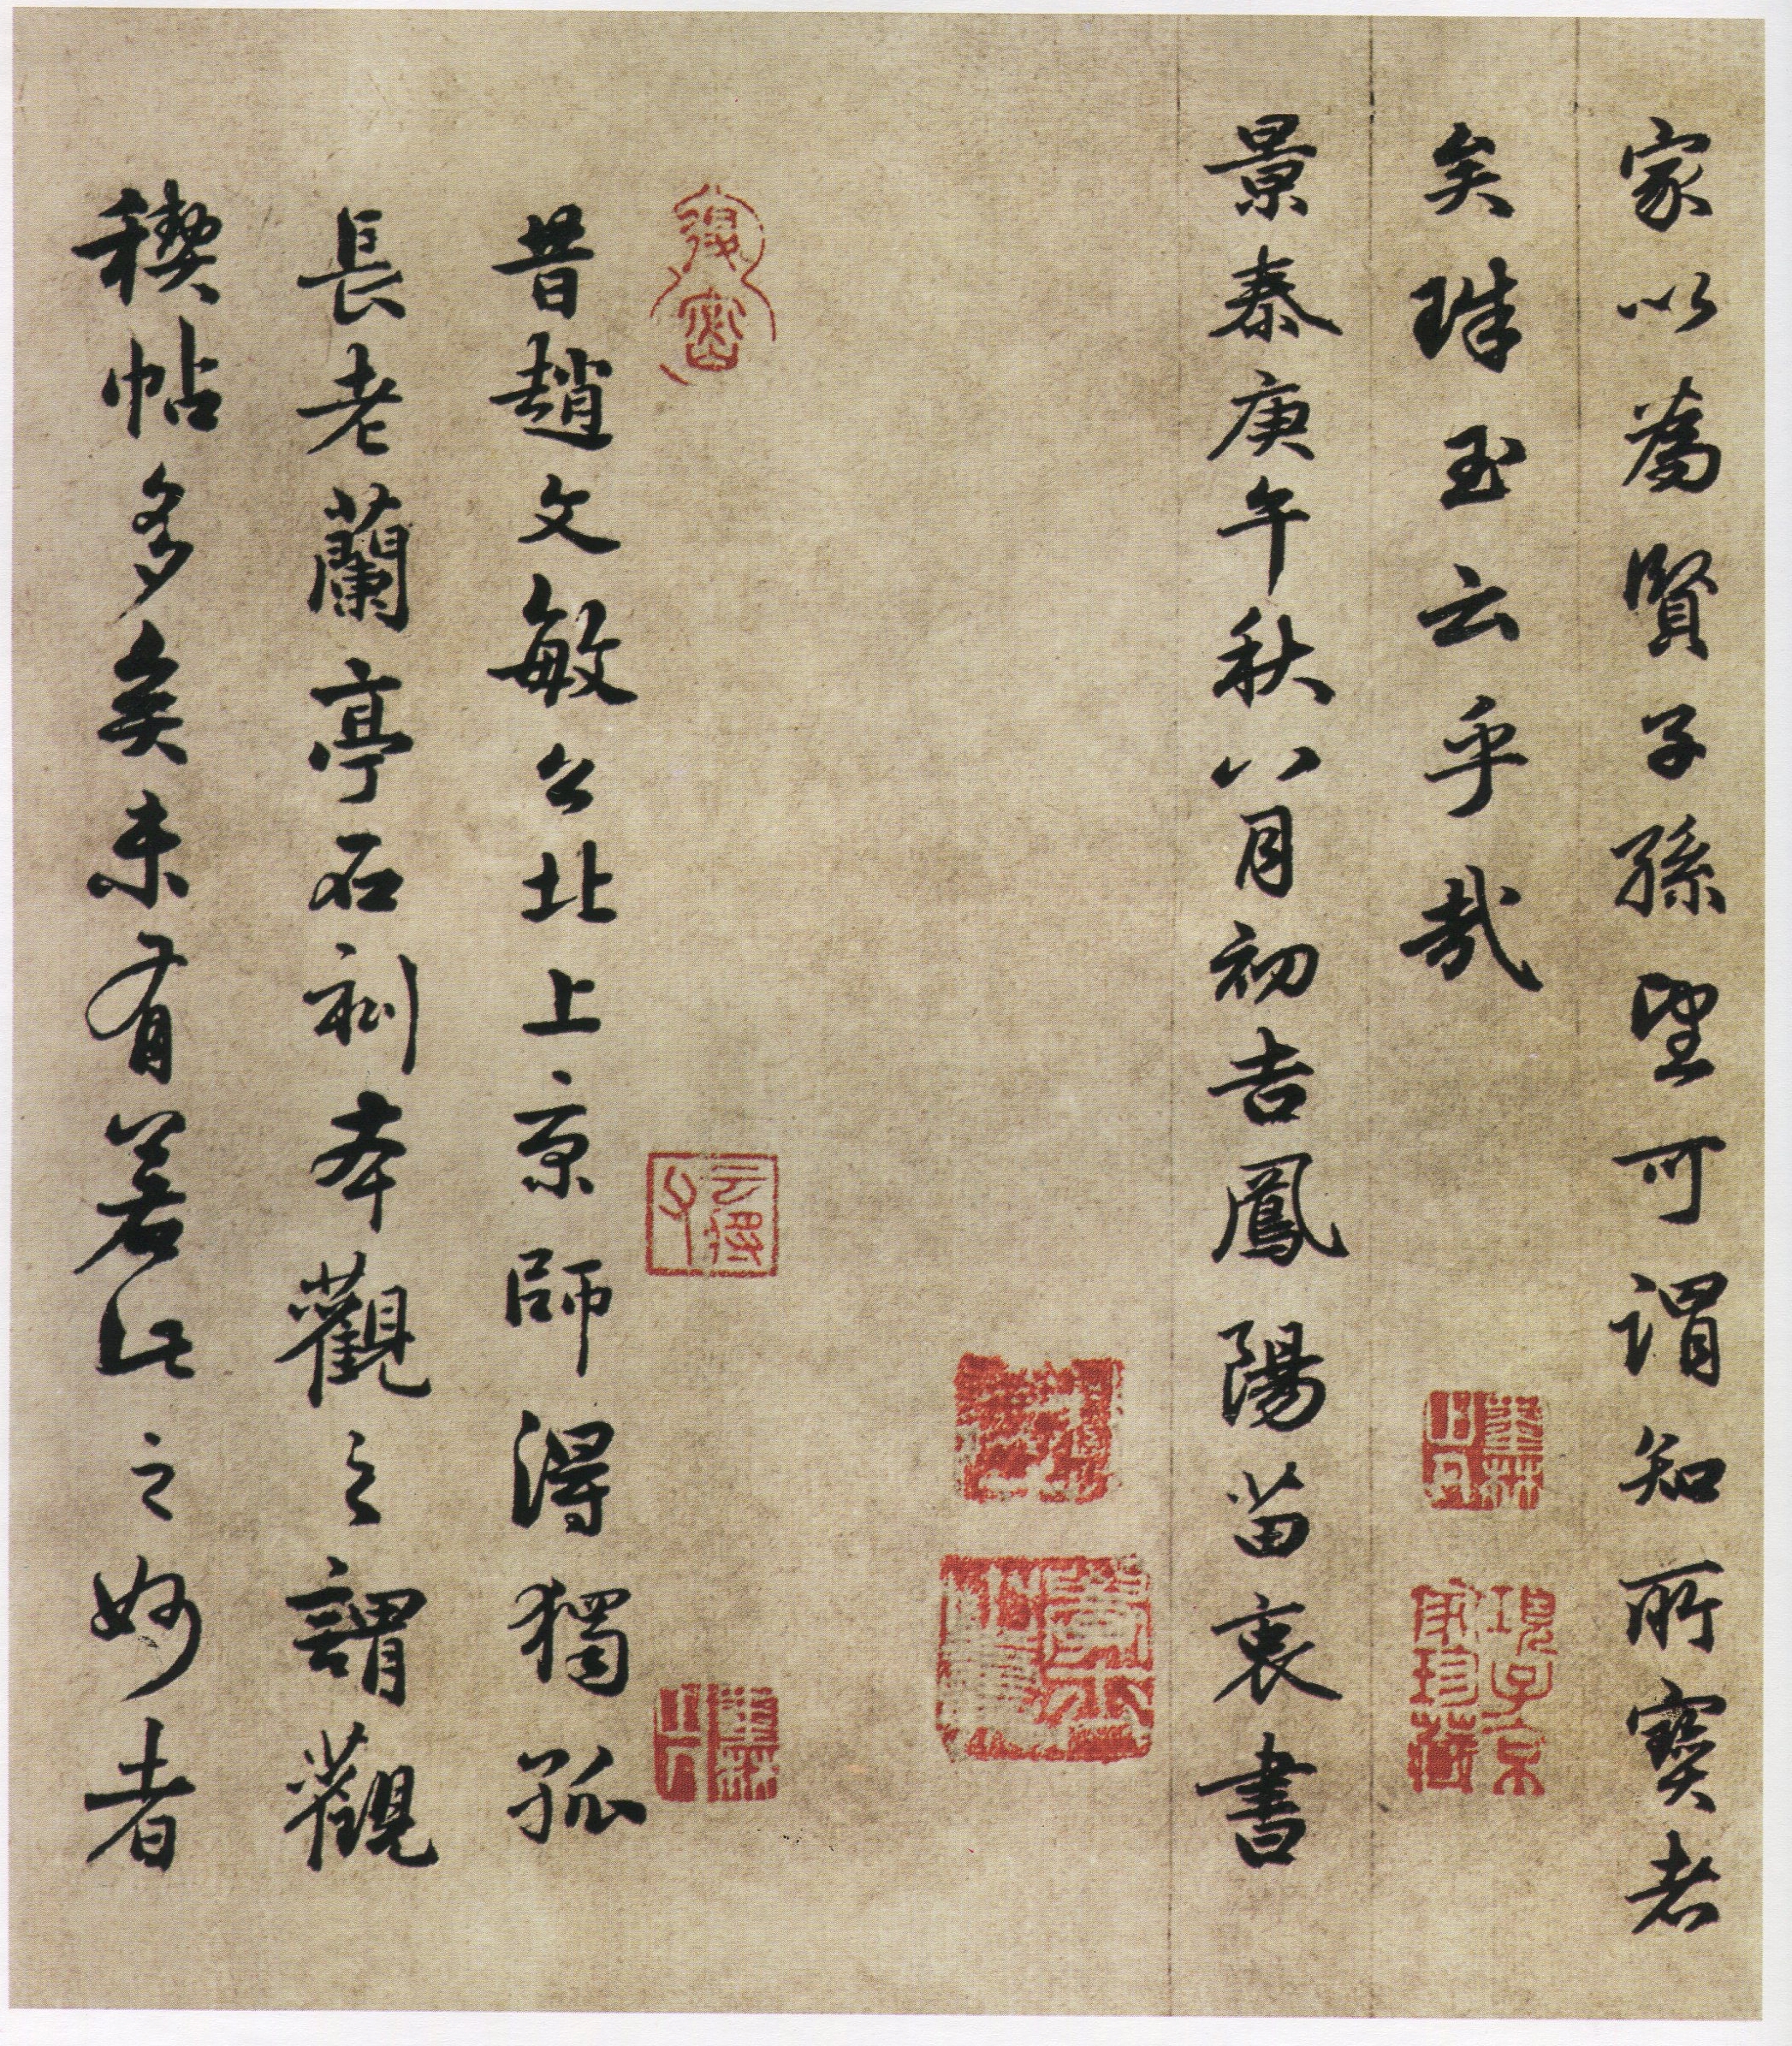 家以為賢子孫望可謂知所寶者
矣珠玉云乎哉
景泰庚午秋八月初吉鳳陽苗衷書
昔趙文敏公北上京師得獨孤
長老蘭亭石刻本觀之謂觀
稧帖多矣未有若此之妙者
項子京
家珍藏
子孫